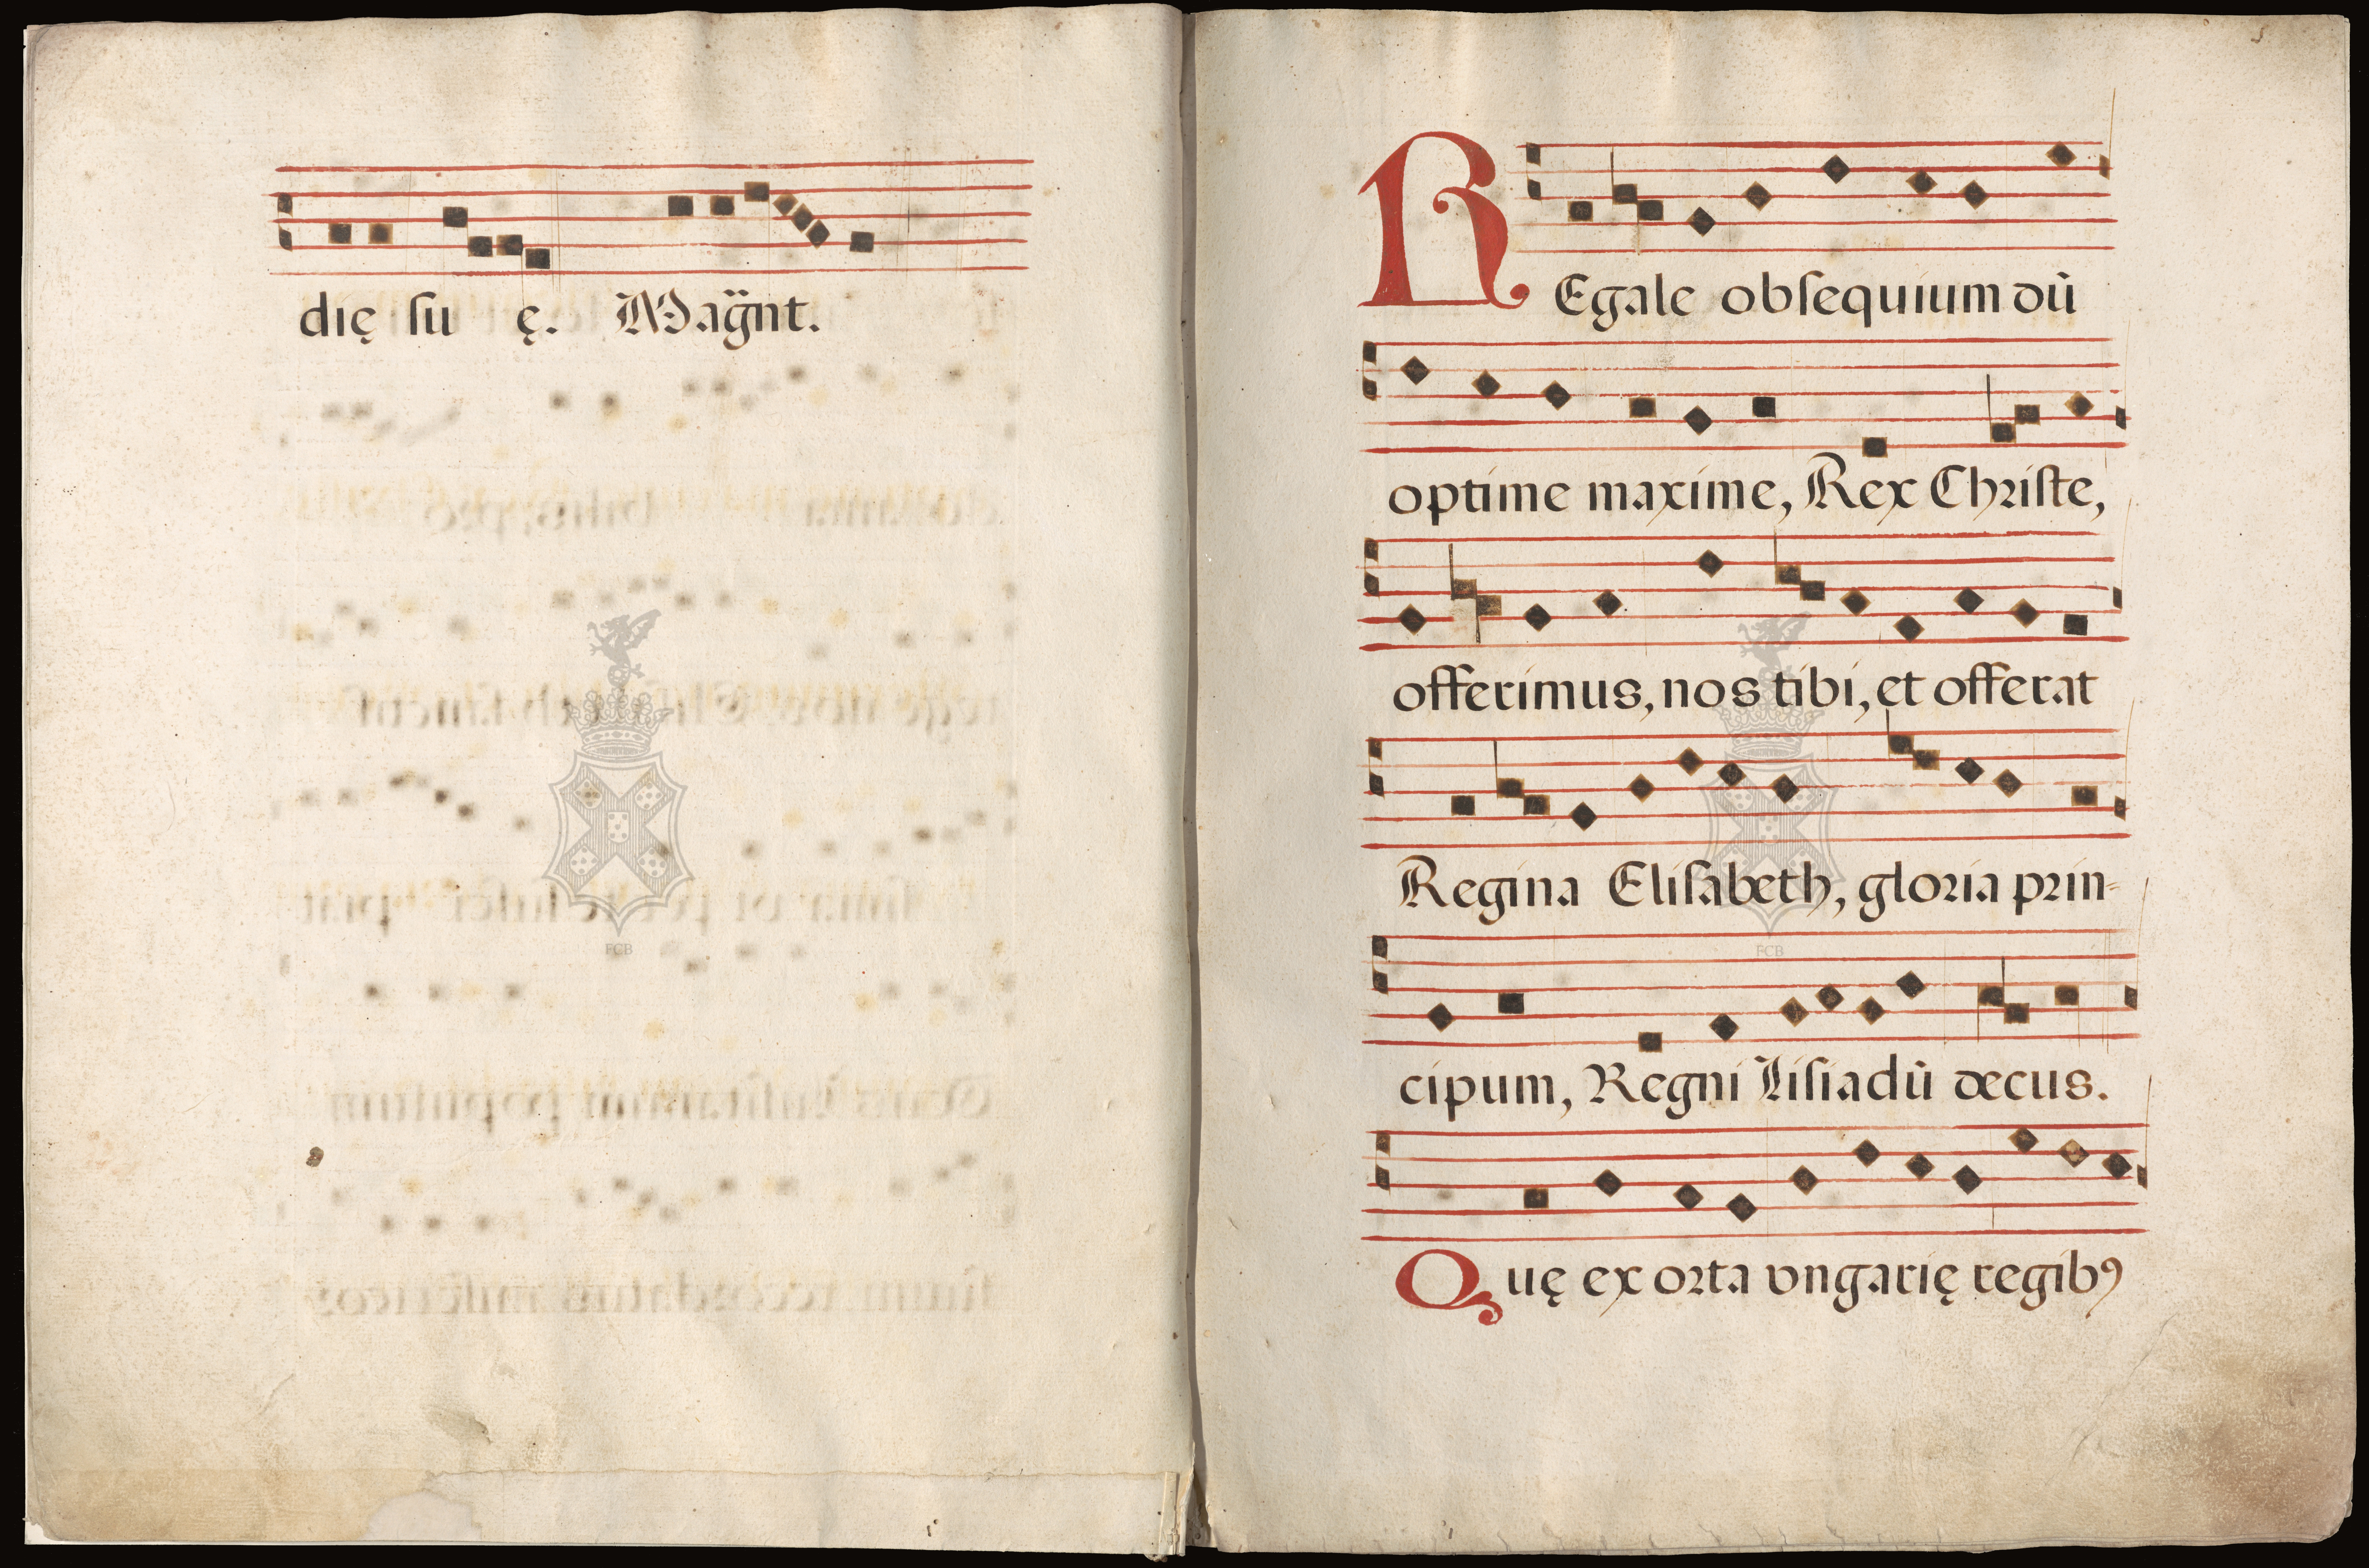 dię su ę. Magñt.
REgale obſequium dū
optime maxime, Rex Chriſte,
offerimus, nos tibi, et offerat
Regina Eliſabeth, gloria prin-
cipum, Regni Liſiadū decus.
Quę ex orta vngarię regibꝰ
FCB
FCB